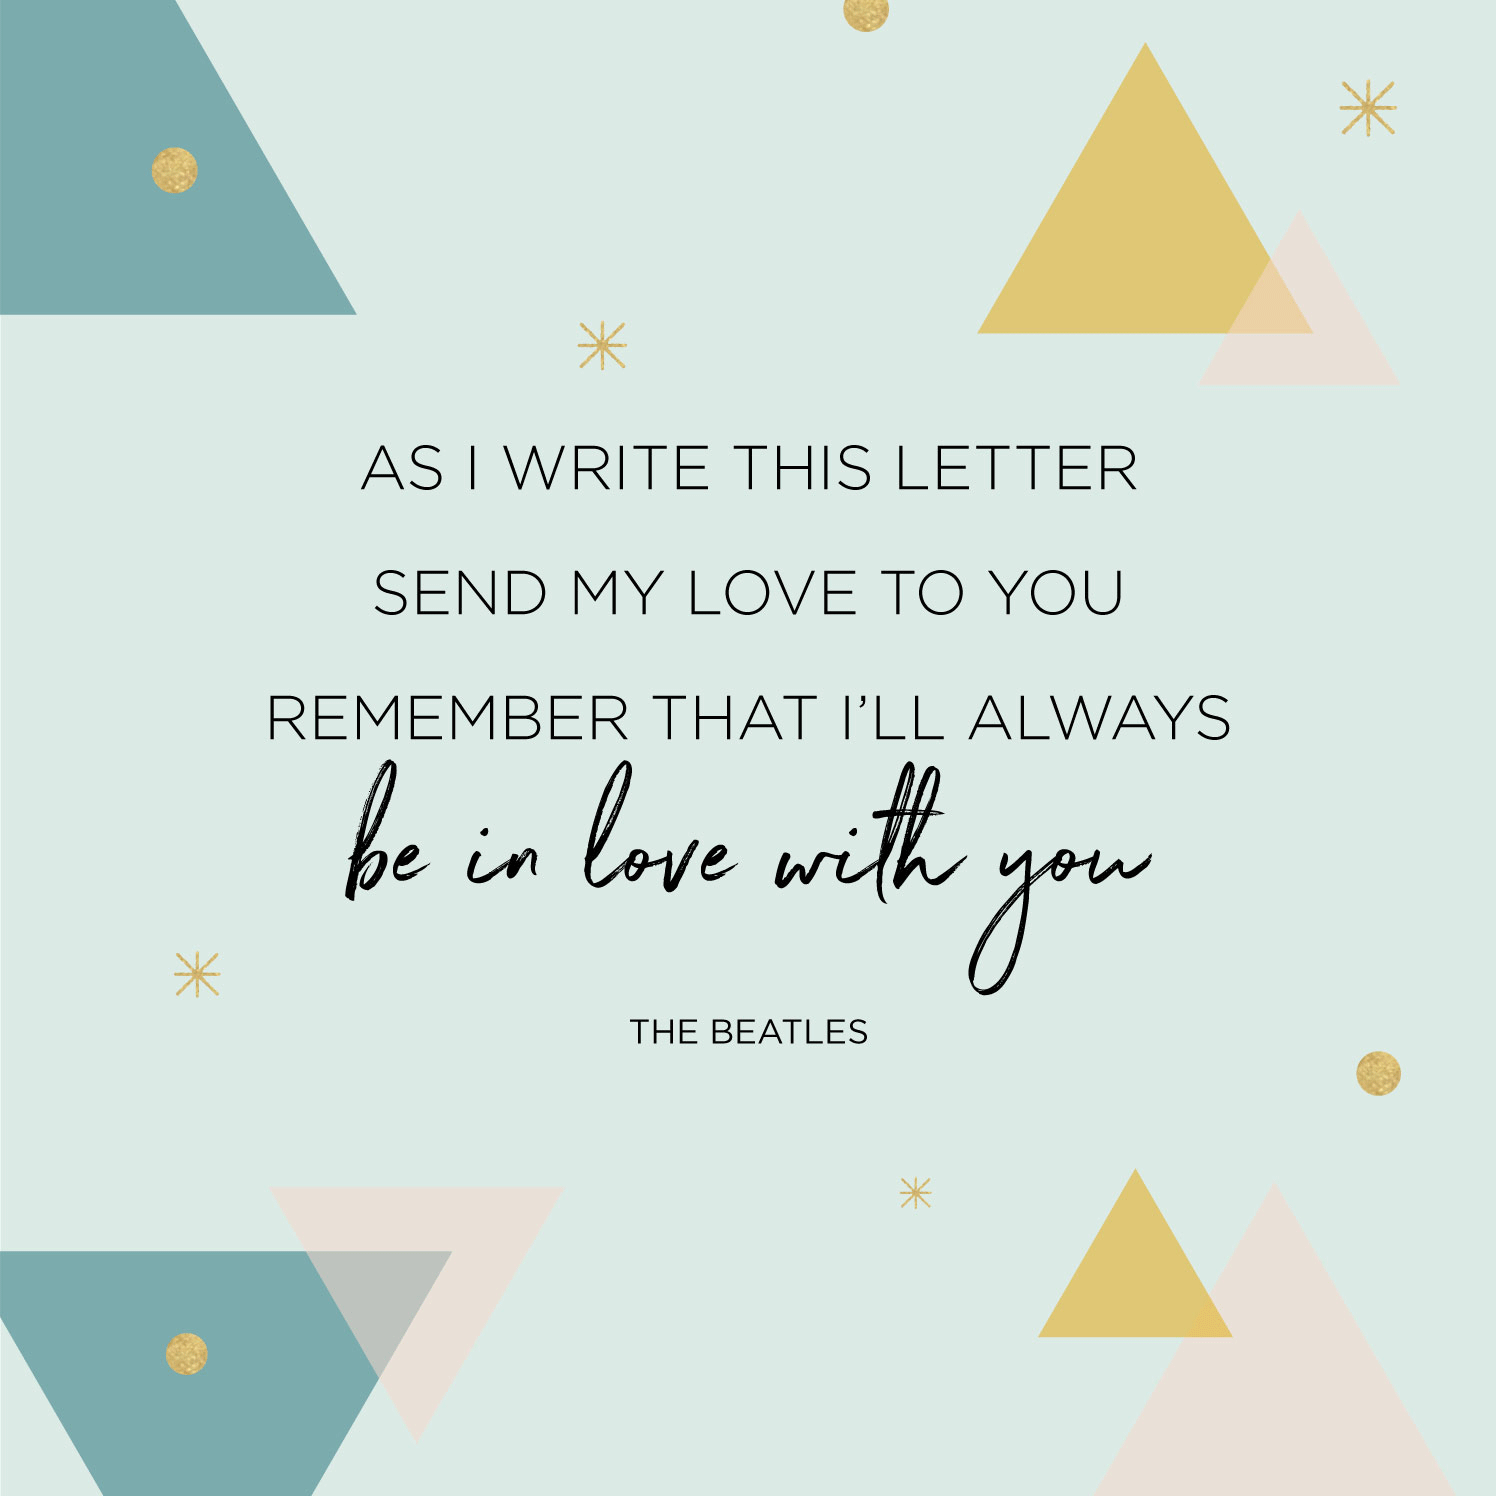 AS I WRITE THIS LETTER
SEND MY LOVE TO YOU
REMEMBER THAT I’LL ALWAYS
be in love with you
THE BEATLES